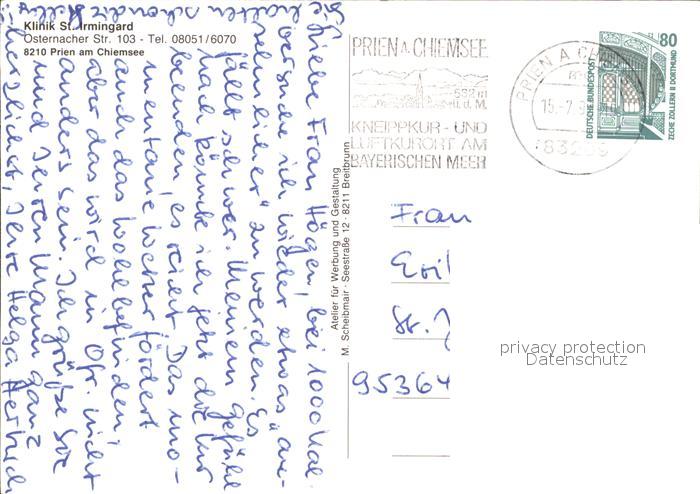 Klinik St. Irmingard
Osternacher Str. 103 - Tel. 08051/6070
8210 Prien am Chiemsee
Liebe Frau Högen, bei 1000 Kal.
versuche ich wieder etwas "an-
sehnlicher" zu werden. Es
fällt schwer. Meinem Gefühl
nach könnte ich jetzt die Kur
beenden, es reicht. Das mo-
mentane Wetter fördert
auch das Wohlbefinden,
aber das wird in Ofr. nicht
anders sein. Ich grüße Sie
und Ihren Mann ganz
herzlichst, Ihre Helga
Atelier für Werbung und Gestaltung
M. Scheibmair · Seestraße 12 · 8211 Breitbrunn
PRIEN A. CHIEMSEE
532 m
ü. d. M.
KNEIPPKUR - UND
LUFTKURORT AM
BAYERISCHEN MEER
PRIEN A CH
15.-7.
83209
80
DEUTSCHE BUNDESPOST
ZECHE ZOLLERN II DORTMUND
Frau
Str.
95364
privacy protection
Datenschutz